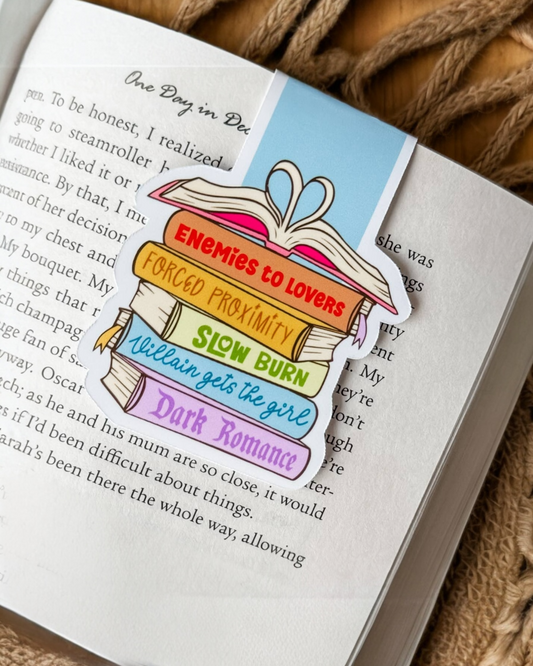 One Day in Dec
pen. To be honest, I realized
going to steamroller h
whether I liked it or
. By that, I m
of her decision
to my chest and
My bouquet. My
things that r
ch champag
uge fan of
yway. Oscar
ech; as he and his mum are so close, it would
s if I'd been difficult about things.
Sarah's been there the whole way, allowing
she was
ings
uty
ent
. My
they're
don't
ough
e're
ter-
ENEMIES TO LOVERS
FORCED PROXIMITY
SLOW BURN
Villain gets the girl
Dark Romance